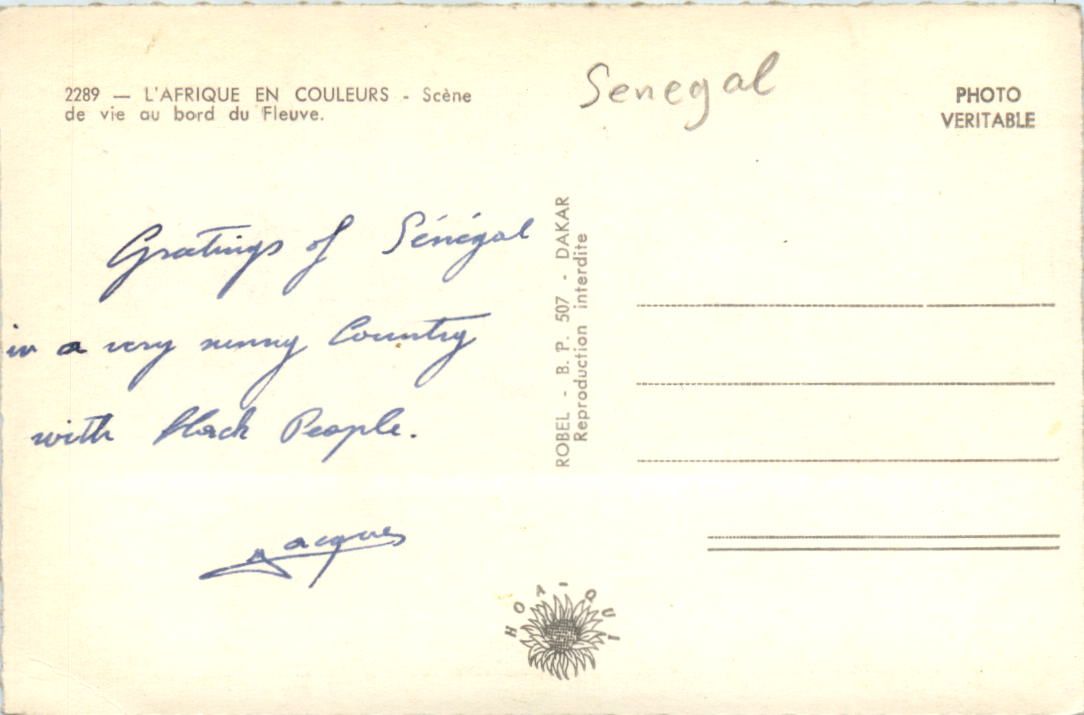 2289 — L'AFRIQUE EN COULEURS - Scène
de vie au bord du Fleuve.
Senegal
PHOTO
VERITABLE
Greatings of Sénégal
in a very sunny Country
with black People.
Jacques
ROBEL - B. P. 507 - DAKAR
Reproduction interdite
HOA-QUI